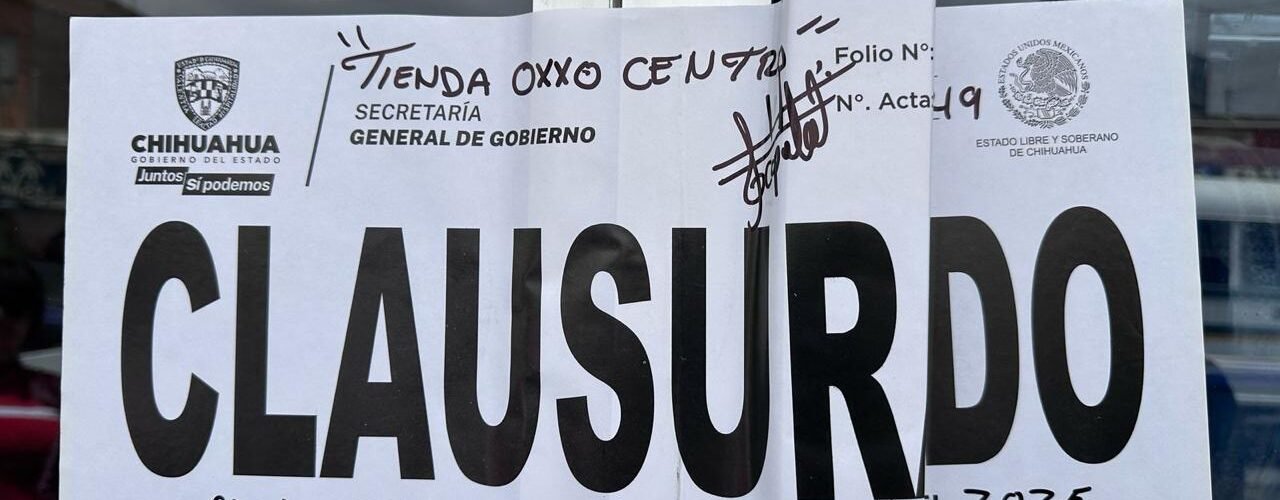 "TIENDA OXXO CENTRO"
Folio N°:
N°. Acta 49
SECRETARÍA
GENERAL DE GOBIERNO
CHIHUAHUA
GOBIERNO DEL ESTADO
Juntos Sí podemos
ESTADOS UNIDOS MEXICANOS
ESTADO LIBRE Y SOBERANO
DE CHIHUAHUA
CLAUSURDO
2025